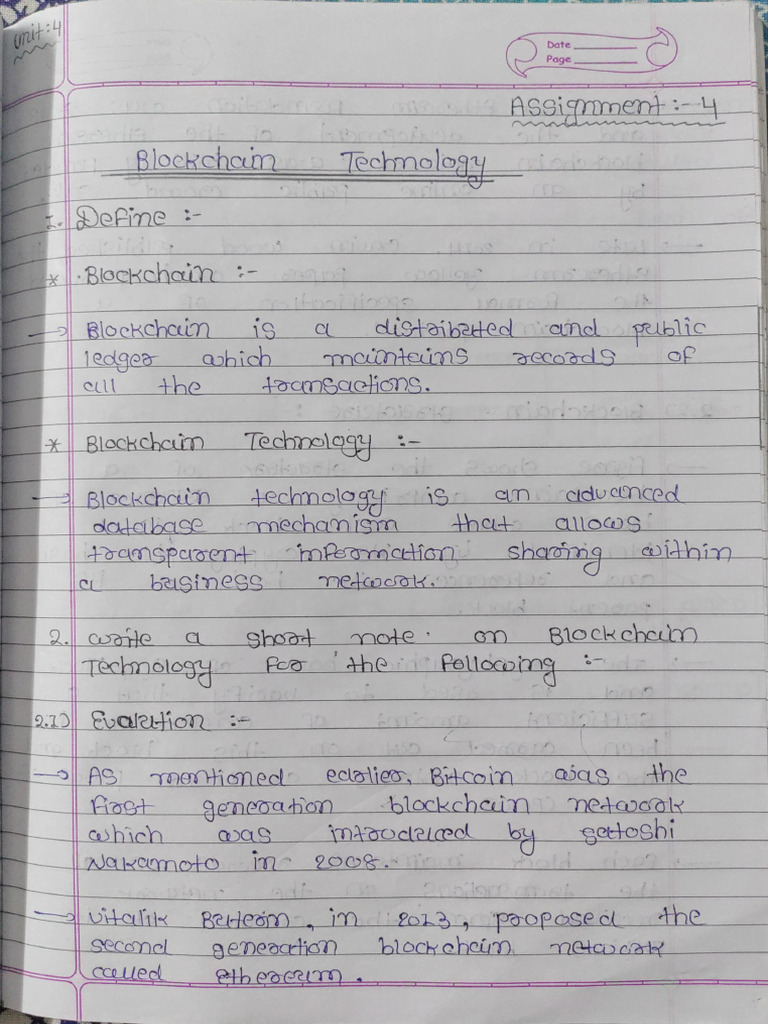 Unit:4
Date
Page
Assignment:- 4
Blockchain Technology
1. Define :-
* Blockchain :-
→ Blockchain is a distributed and public
ledger which maintains records of
all the transactions.
* Blockchain Technology :-
→ Blockchain technology is an advanced
database mechanism that allows
transparent information sharing within
a business network.
2. write a short note on Blockchain
Technology for the following :-
2.1) Evalution :-
→ As mentioned earlier, Bitcoin was the
first generation blockchain network
which was introduced by satoshi
Nakamoto in 2008.
→ Vitalik Buterin, in 2013, proposed the
second generation blockchain network
called ethereum.